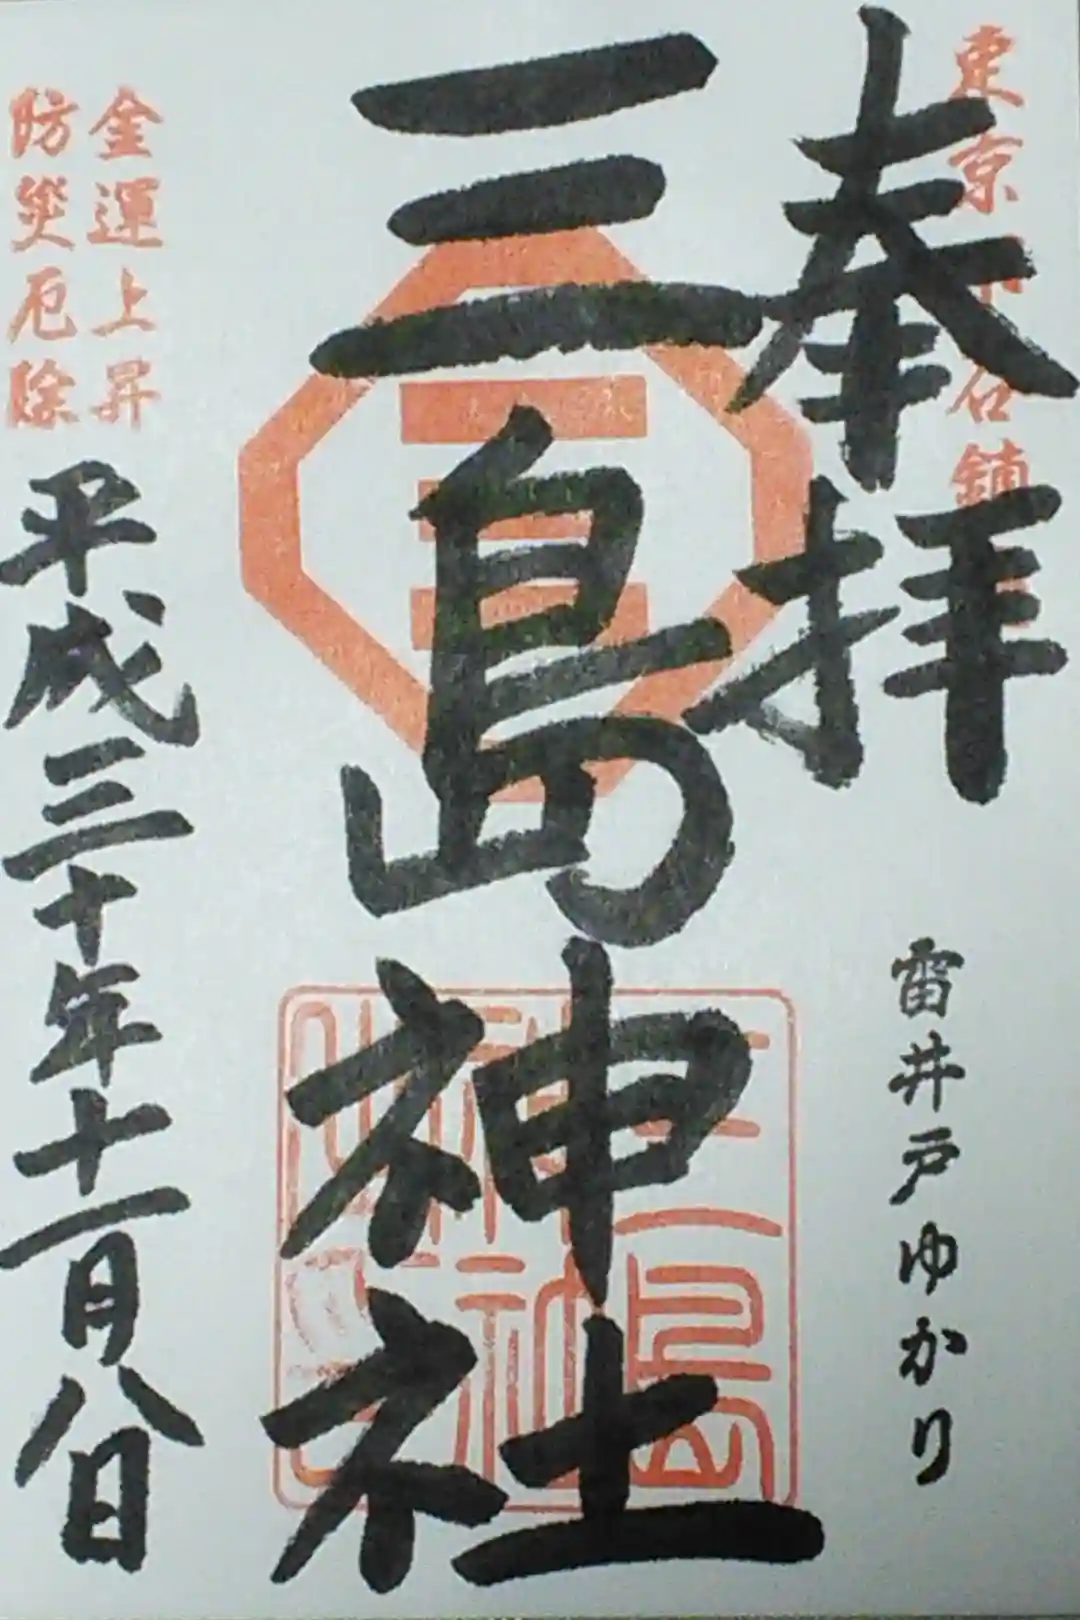 奉拝
雷井戸ゆかり
三島神社
三島神社
金運上昇
防災厄除
平成三十年十一月八日